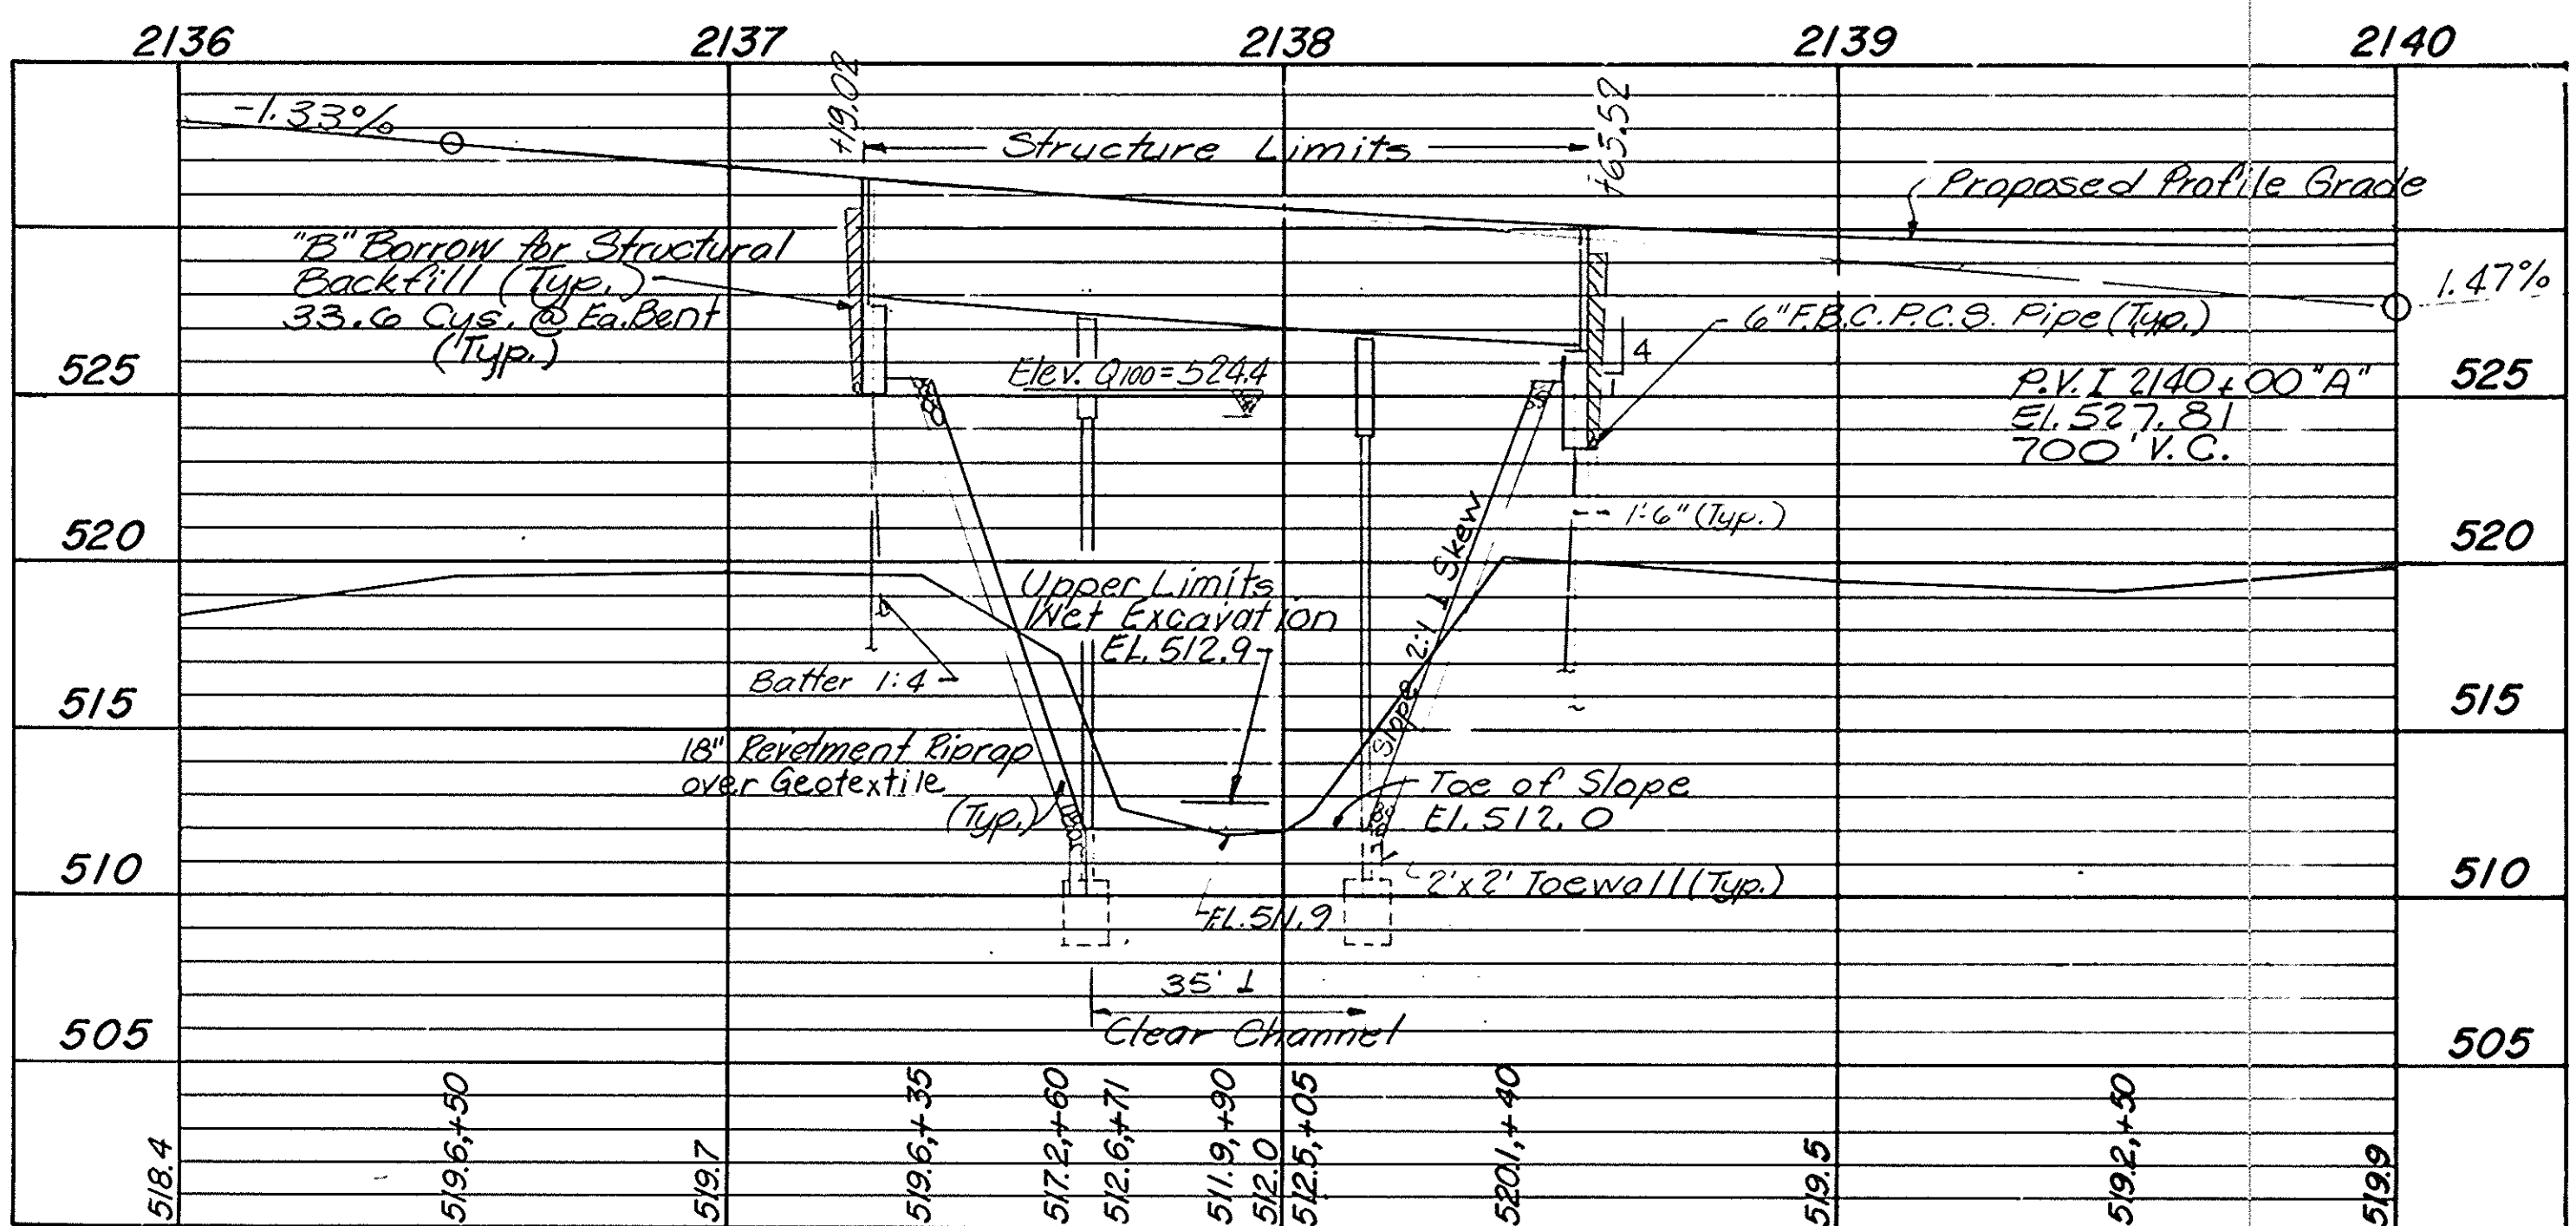 2136 2137 2138 2139 2140
-1.33%
+19.02
Structure Limits
+65.52
Proposed Profile Grade
"B" Borrow for Structural
Backfill (Typ.)
33.6 Cys. @ Ea. Bent
(Typ.)
1.47%
6" F.B.C.P.C.S. Pipe (Typ.)
4
1
525
Elev. Q100 = 524.4
P.V.I 2140+00 "A"
El. 527.81
700' V.C.
525
520
1'-6" (Typ.)
520
Upper Limits
Wet Excavation
EL. 512.9
Slope 2:1 ⊥ Skew
Batter 1:4
515
515
18" Revetment Riprap
over Geotextile
(Typ.)
Toe of Slope
El. 512.0
510
2'x2' Toewall (Typ.)
510
EL. 511.9
35' ⊥
Clear Channel
505
505
518.4
519.6,+50
519.7
519.6,+35
517.2,+60
512.6,+71
511.9,+90
512.0
512.5,+05
520.1,+40
519.5
519.2,+50
519.9